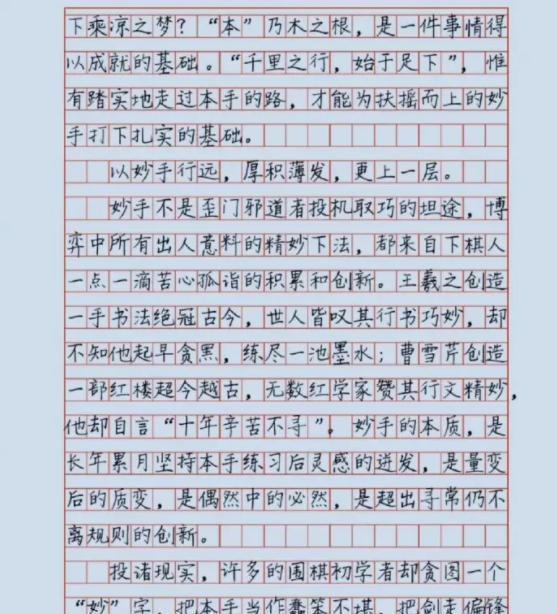 下乘凉之梦？“本”乃木之根，是一件事情得
以成就的基础。“千里之行，始于足下”，惟
有踏实地走过本手的路，才能为扶摇而上的妙
手打下扎实的基础。
以妙手行远，厚积薄发，更上一层。
妙手不是歪门邪道者投机取巧的坦途，博
弈中所有出人意料的精妙下法，都来自下棋人
一点一滴苦心孤诣的积累和创新。王羲之创造
一手书法绝冠古今，世人皆叹其行书巧妙，却
不知他起早贪黑，练尽一池墨水；曹雪芹创造
一部红楼超今越古，无数红学家赞其行文精妙，
他却自言“十年辛苦不寻”。妙手的本质，是
长年累月坚持本手练习后灵感的迸发，是量变
后的质变，是偶然中的必然，是超出寻常仍不
离规则的创新。
投诸现实，许多的围棋初学者却贪图一个
“妙”字，把本手当作蠢笨不堪，把剑走偏锋